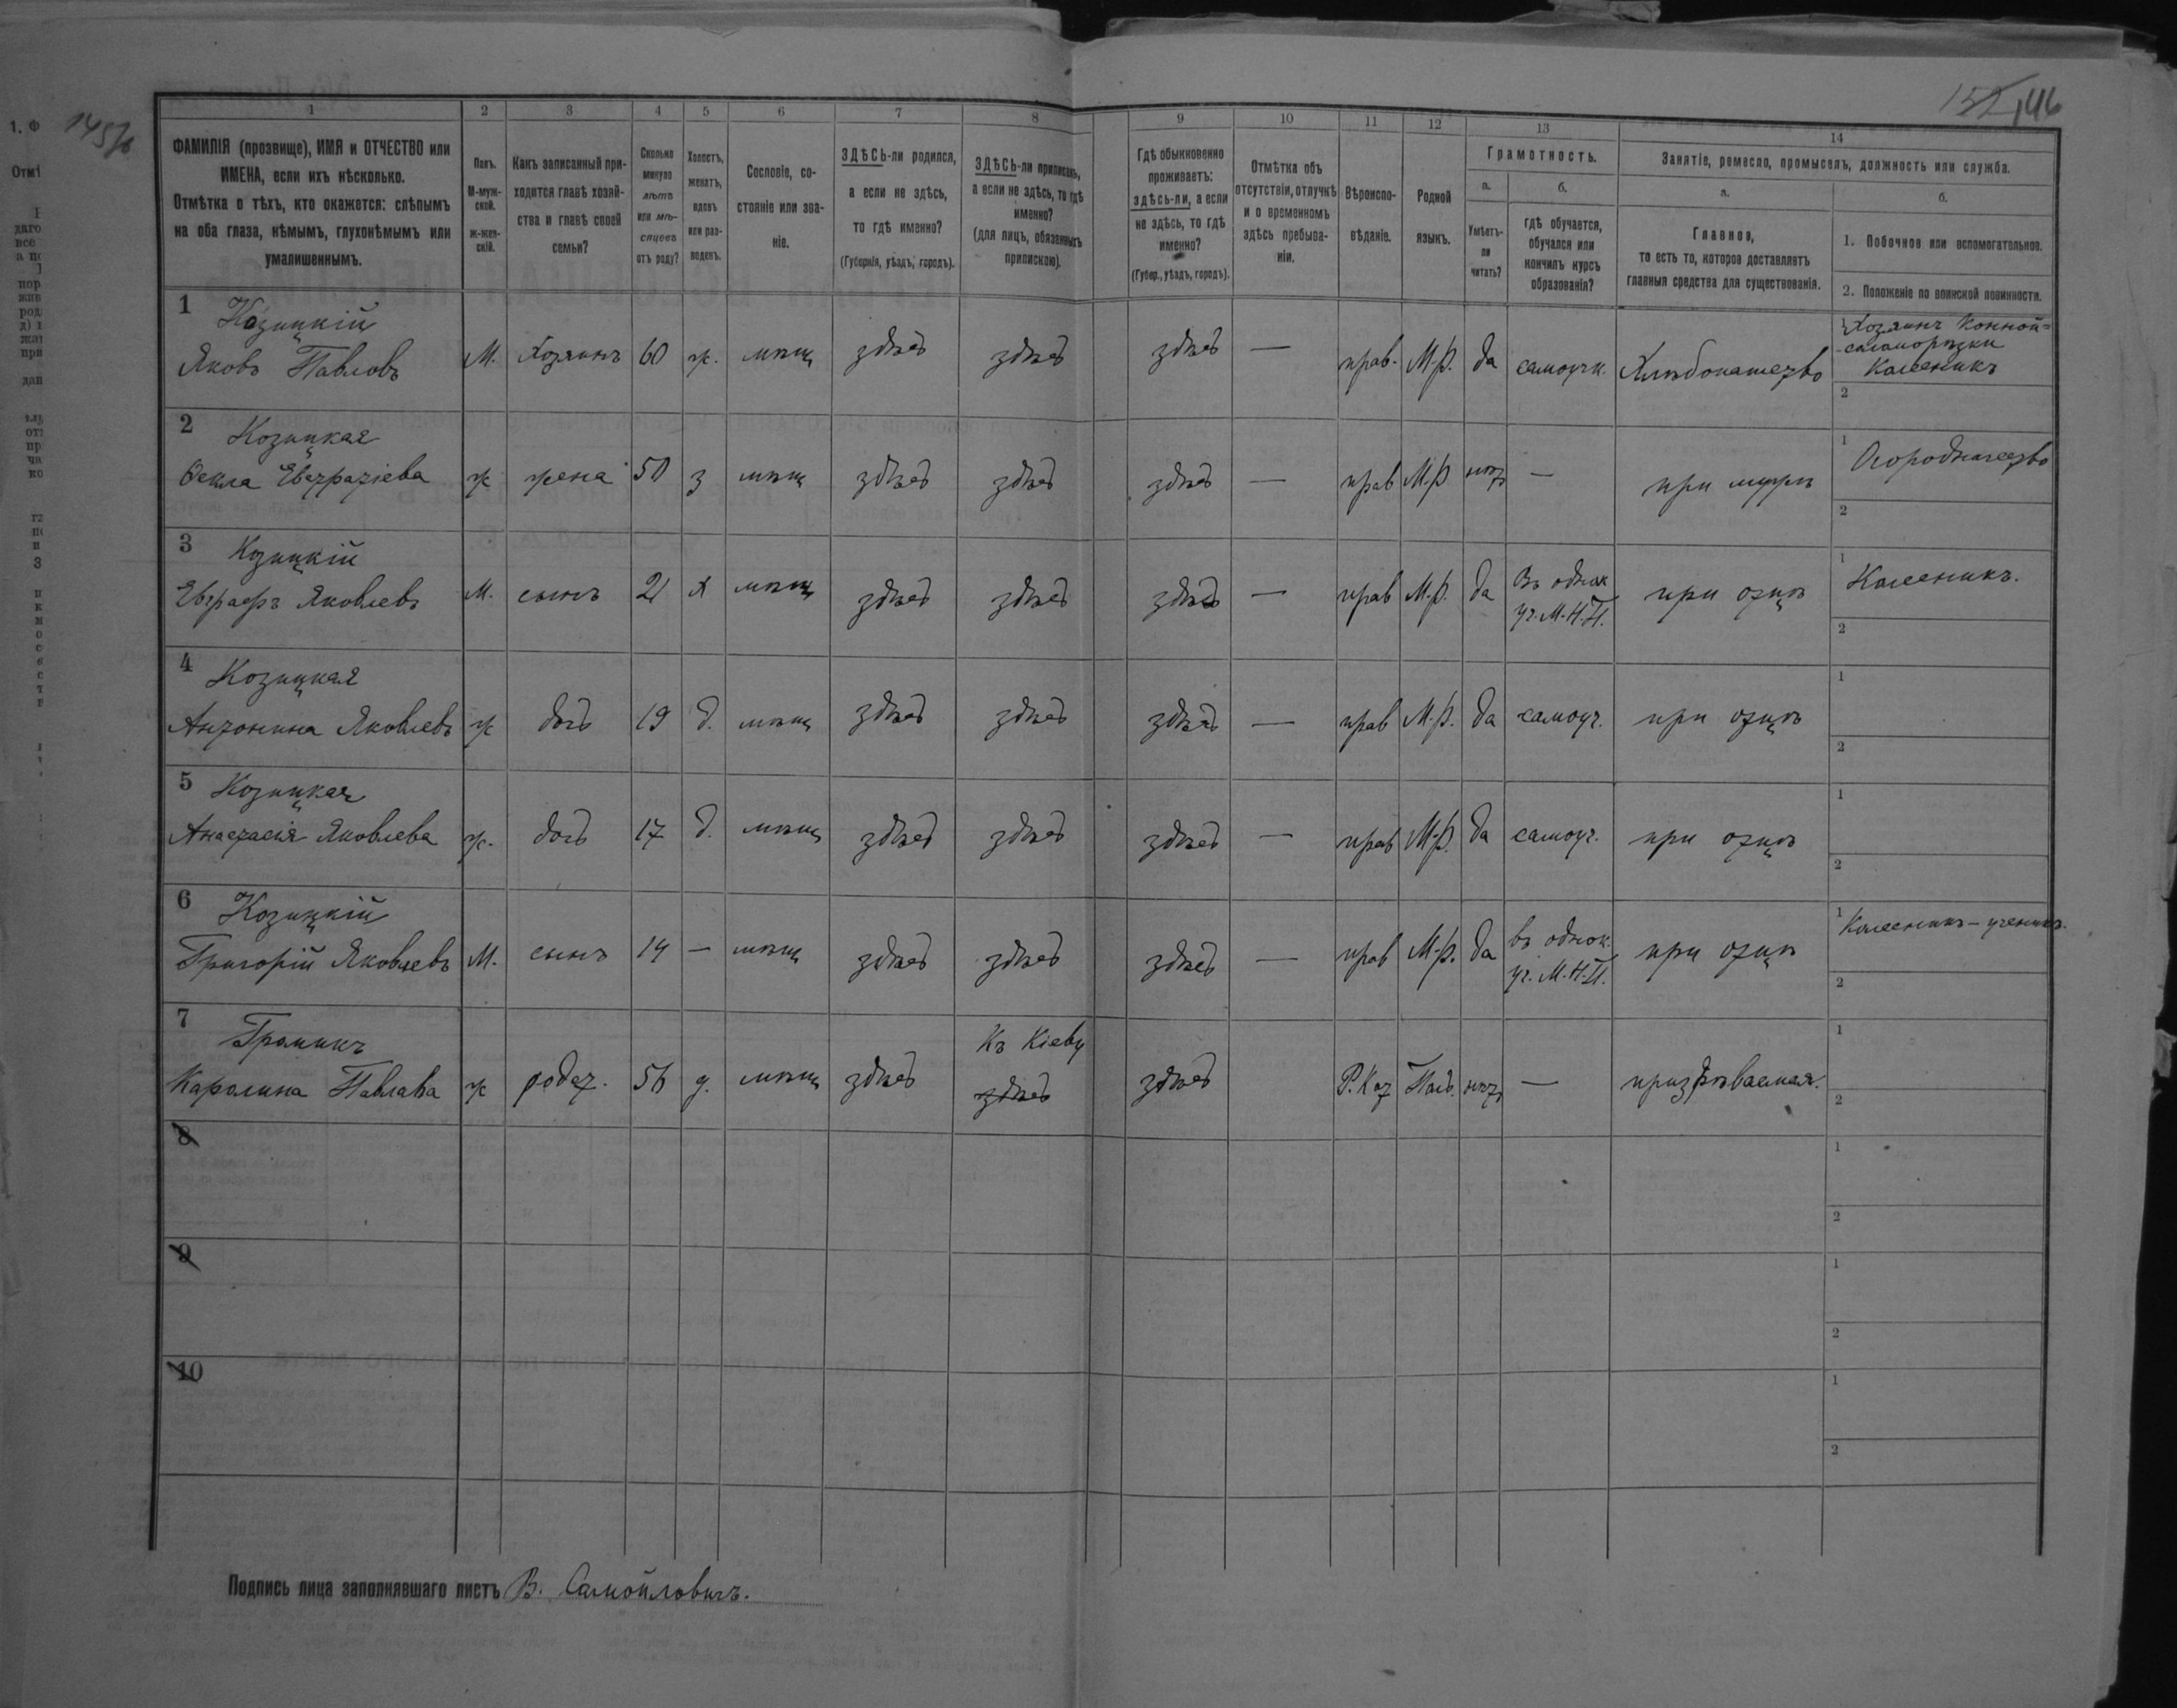 145/6
152 146
1 2 3 4 5 6 7 8 9 10 11 12 13 14
ФАМИЛІЯ (прозвище), ИМЯ и ОТЧЕСТВО или
ИМЕНА, если ихъ нѣсколько.
Отмѣтка о тѣхъ, кто окажется: слѣпымъ
на оба глаза, нѣмымъ, глухонѣмымъ или
умалишеннымъ.
Полъ.
М-муж-
ской.
ж-жен-
скій.
Какъ записанный при-
ходится главѣ хозяй-
ства и главѣ своей
семьи?
Сколько
минуло
лѣтъ
или мѣ-
сяцевъ
отъ роду?
Холостъ,
женатъ,
вдовъ
или раз-
веденъ.
Сословіе, со-
стояніе или зва-
ніе.
ЗДѢСЬ-ли родился,
а если не здѣсь,
то гдѣ именно?
(Губернія, уѣздъ, городъ).
ЗДѢСЬ-ли приписанъ,
а если не здѣсь, то гдѣ
именно?
(для лицъ, обязанныхъ
припискою).
Гдѣ обыкновенно
проживаетъ:
здѣсь-ли, а если
не здѣсь, то гдѣ
именно?
(Губер., уѣздъ, городъ).
Отмѣтка объ
отсутствіи, отлучкѣ
и о временномъ
здѣсь пребыва-
ніи.
Вѣроиспо-
вѣданіе.
Родной
языкъ.
Грамотность.
а.
Умѣетъ-
ли
читать?
б.
гдѣ обучается,
обучался или
кончилъ курсъ
образованія?
Занятіе, ремесло, промыселъ, должность или служба.
а.
Главное,
то есть то, которое доставляетъ
главныя средства для существованія.
б.
1. Побочное или вспомогательное.
2. Положеніе по воинской повинности.
1 Козицкій
Яковъ Павловъ М. Хозяинъ 60 ж. мѣщ здѣсь здѣсь здѣсь — прав. М-р. да самоучк. Хлѣбопашество
1 Хозяинъ конной-
-саломорѣзки
Колесникъ
2
2 Козицкая
Ѳекла Евстратіева ж жена 50 з мѣщ здѣсь здѣсь здѣсь — прав М-р нѣтъ — при мужѣ
1 Огородничество
2
3 Козицкій
Евграфъ Яковлевъ М. сынъ 21 х мѣщ здѣсь здѣсь здѣсь — прав М-р. да Въ однок
уч. М.Н.П. при отцѣ
1 Колесникъ.
2
4 Козицкая
Антонина Яковлевъ ж дочь 19 д. мѣщ здѣсь здѣсь здѣсь — прав М-р. да самоуч. при отцѣ
1
2
5 Козицкая
Анастасія Яковлева ж. дочь 17 д. мѣщ здѣсь здѣсь здѣсь — прав М-р. да самоуч. при отцѣ
1
2
6 Козицкій
Григорій Яковлевъ М. сынъ 14 — мѣщ здѣсь здѣсь здѣсь — прав М-р. да въ однок.
уч. М.Н.П. при отцѣ
1 Колесникъ-ученикъ.
2
7
Каролина Павлова ж родст. 56 мѣщ здѣсь Къ Кіеву
здѣсь здѣсь Р.Кат Поль. нѣтъ — призрѣваемая.
1
2
8
1
2
9
1
2
10
1
2
Подпись лица заполнявшаго листъ В. Самойловичъ.